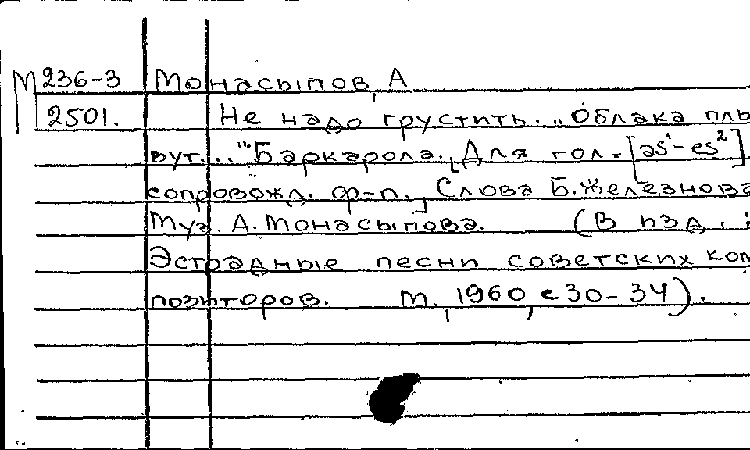 М 236-3 Монасыпов, А
2501. Не надо грустить. „Облака плы
вут..." Баркарола. [Для гол. [as¹-es²]
сопровожд. ф-п.], Слова Б. Железнова
Муз. А. Монасыпова. (В изд.:
Эстрадные песни советских ком
позиторов. М., 1960, с 30-34).